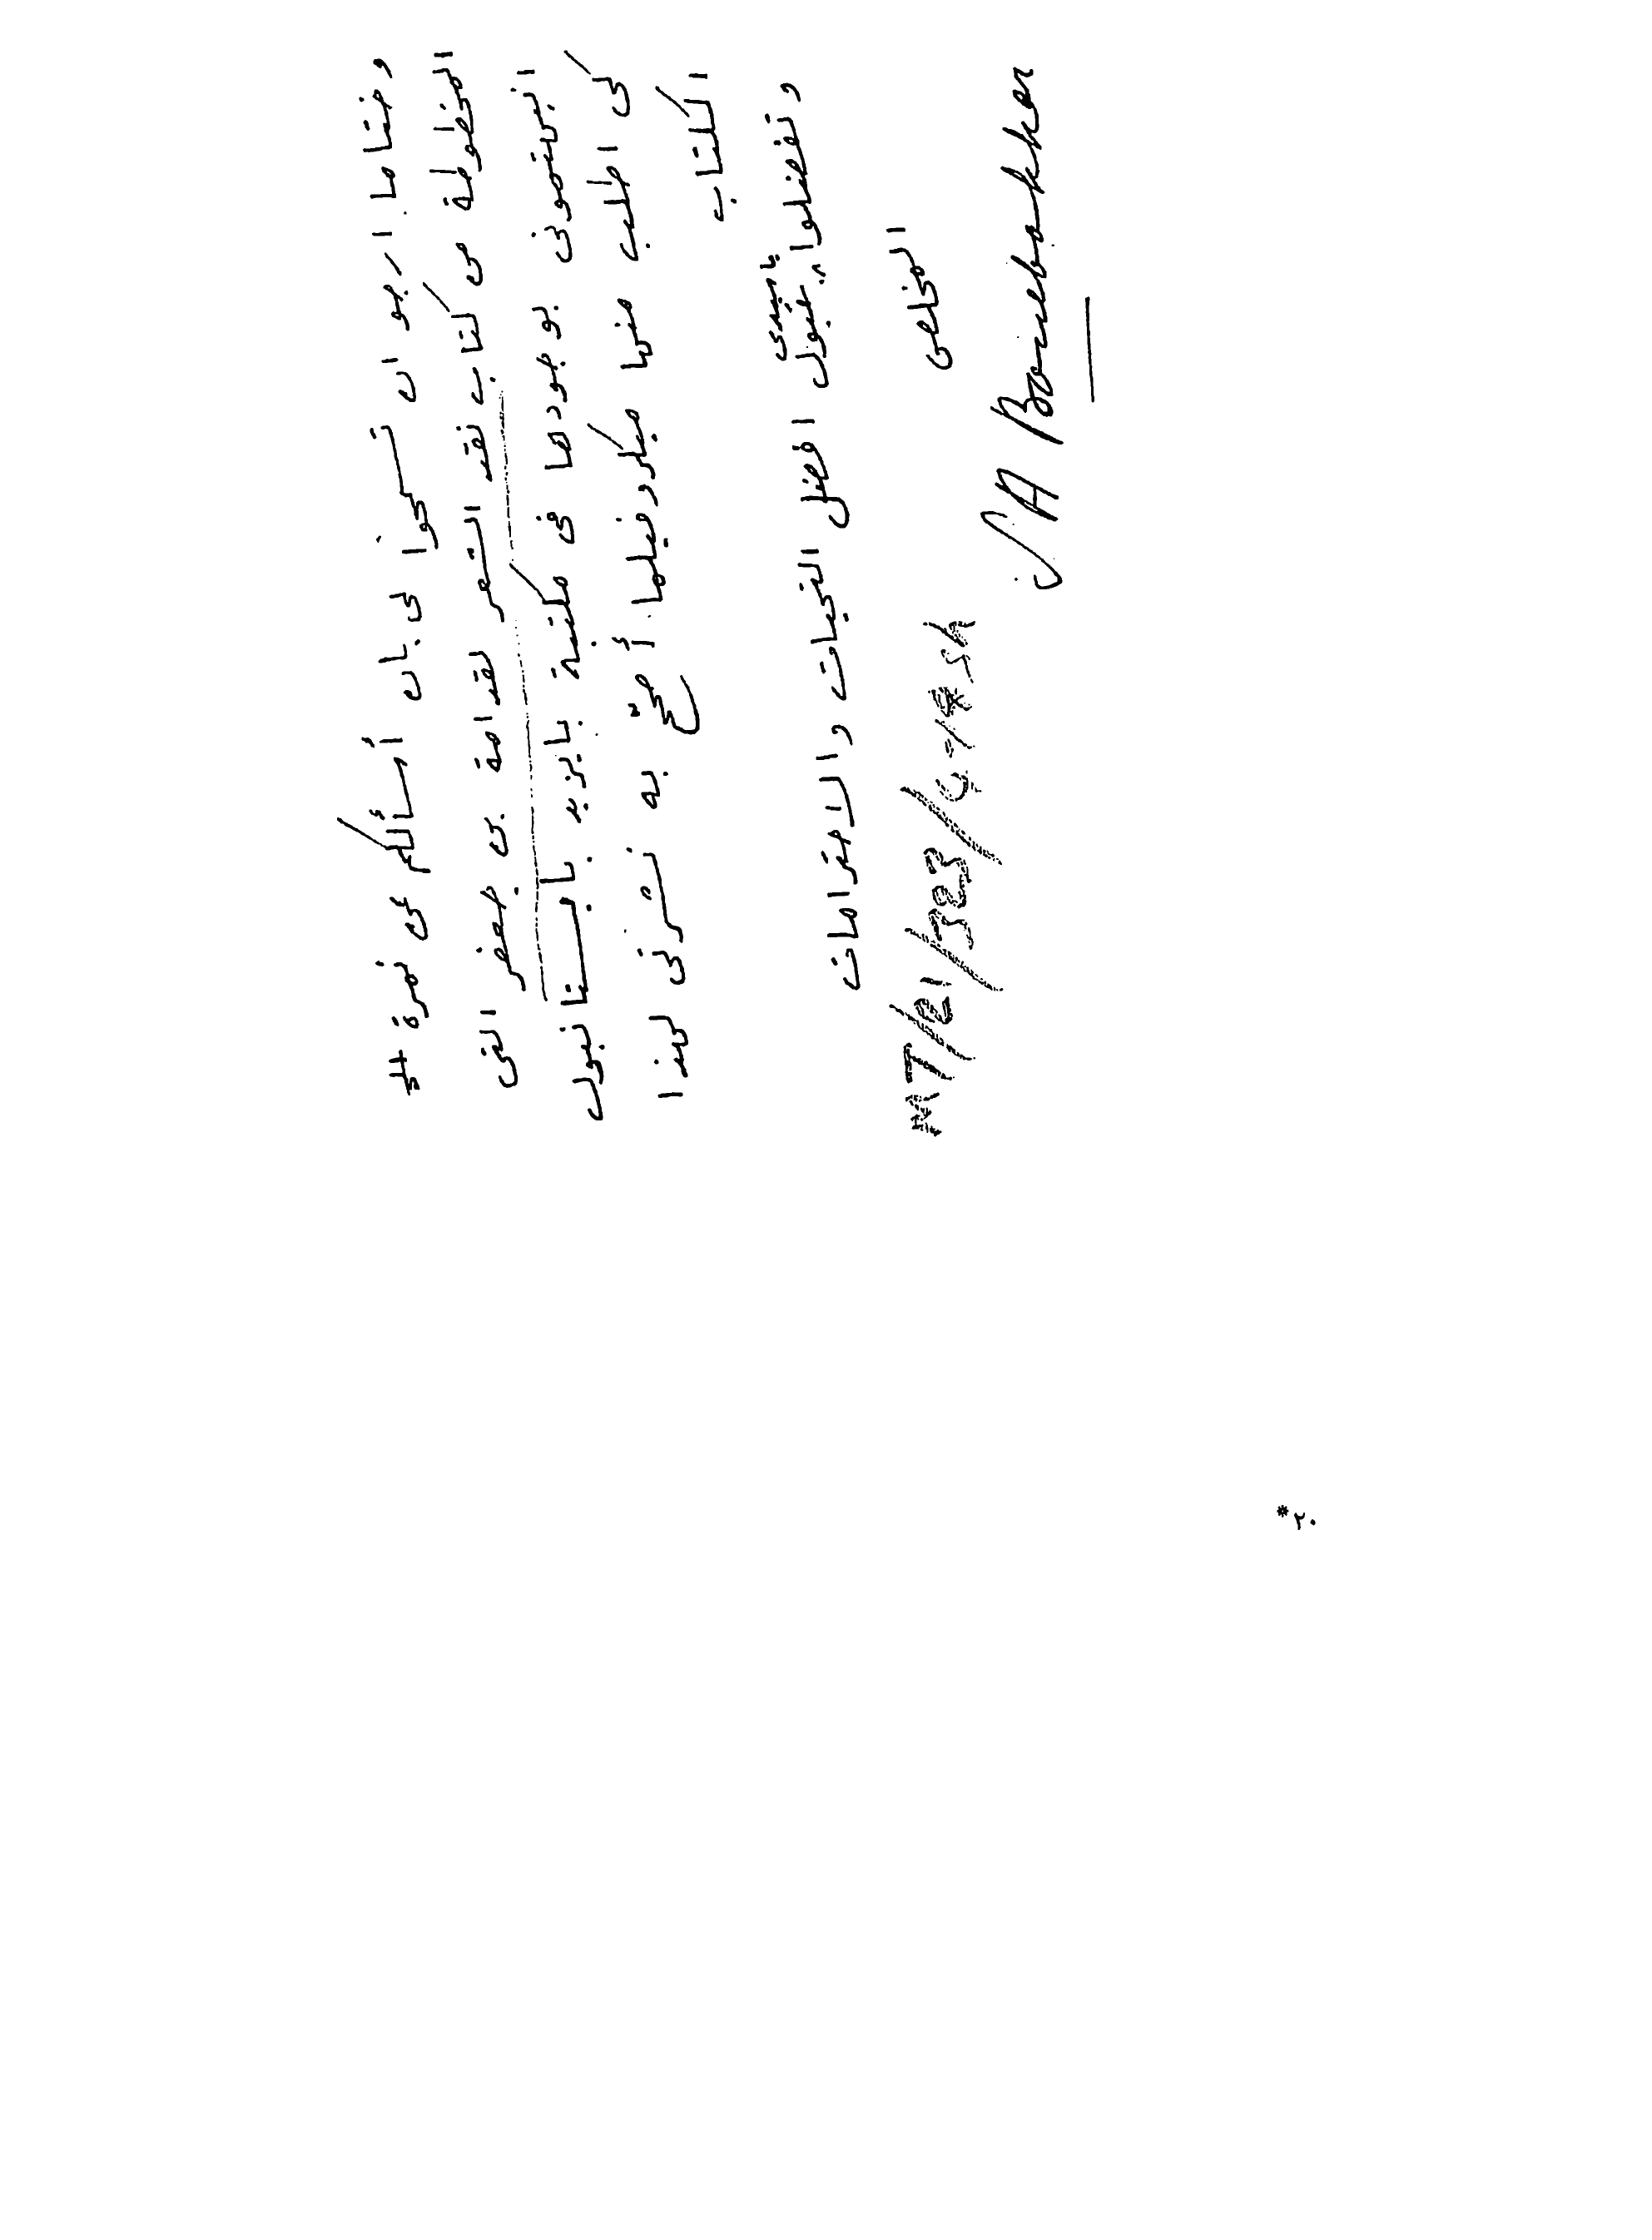 وختاما ارجو ان تسمحوا لى بان أسألكم عن نمرة
المخطوطة من كتاب نقد الشعر لقدامة بن جعفر التى
انبئتمونى بوجودها فى مكتبة بايزيد باستانبول
كى اطلب منها ميكروفيلما أصحّح به نشرتى لهذا
الكتاب
وتفضلوا يا سيدى بقبول افضل التحيات والاحترامات
المخلص
S A Bonebakker
MT/21/383/4